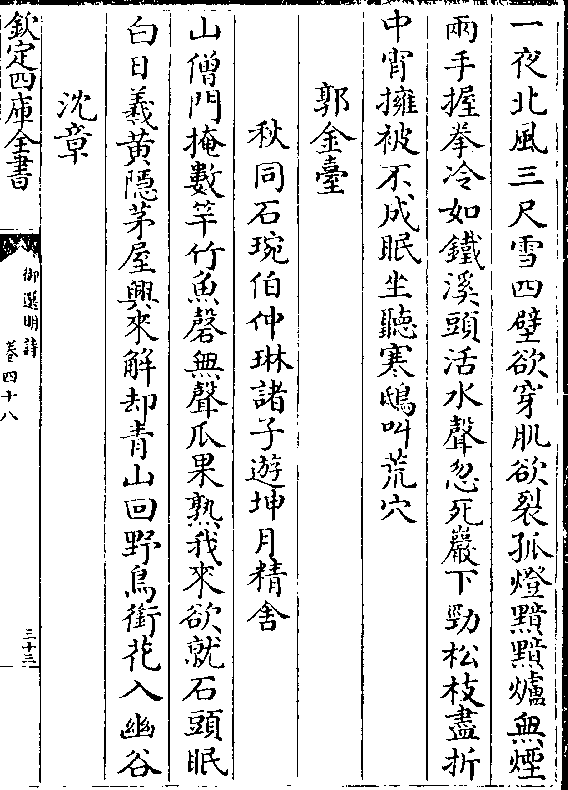 一夜北風三尺雪四壁欲穿肌欲裂孤燈黯黯爐無煙
兩手握拳冷如鐵溪頭活水聲忽死巖下勁松枝盡折
中宵擁被不成眠坐聽寒鴟叫荒穴
郭金臺
秋同石琬伯仲琳諸子遊坤月精舍
山僧門掩數竿竹魚磬無聲瓜果熟我來欲就石頭眠
白日羲黄隱茅屋興來解却青山回野鳥銜花入幽谷
沈章
欽定四庫全書
御選明詩
卷四十八
三十三